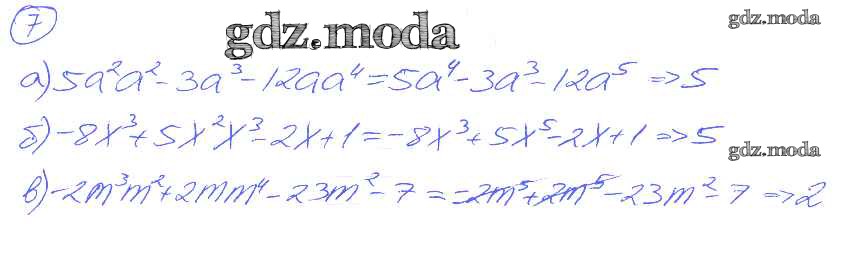 7
gdz.moda
gdz.moda
а) 5a²a² - 3a³ - 12aa⁴ = 5a⁴ - 3a³ - 12a⁵ => 5
б) -8x³ + 5x²x³ - 2x + 1 = -8x³ + 5x⁵ - 2x + 1 => 5
gdz.moda
в) -2m³m² + 2mm⁴ - 23m² - 7 = -2m⁵ + 2m⁵ - 23m² - 7 => 2